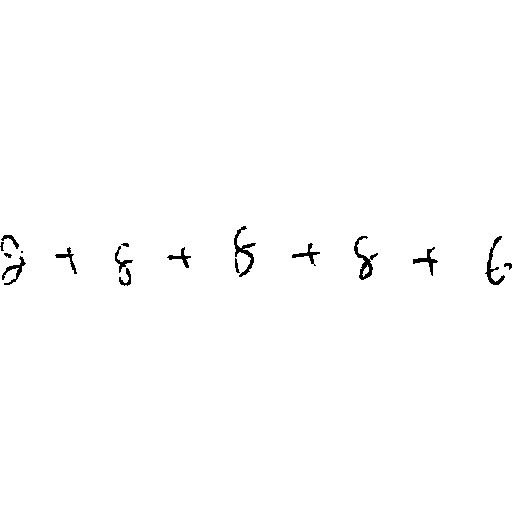 + 8 + 8 + 8 + 6